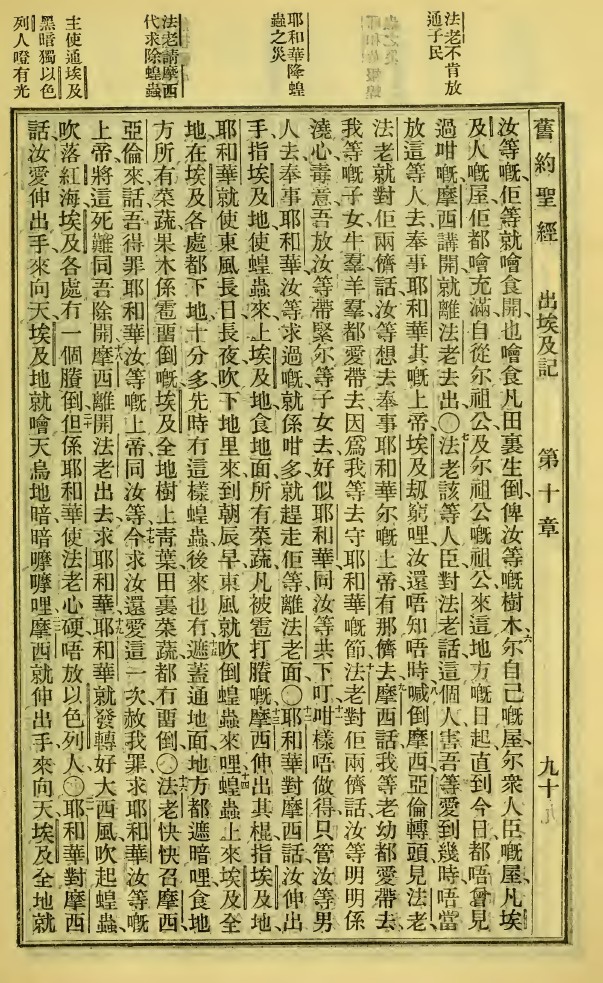 法老不肯放
通子民
耶和華降蝗
蟲之災
法老請摩西
代求除蝗蟲
主使通埃及
黑暗獨以色
列人噔有光
舊約聖經 出埃及記 第十章 九十
汝等嘅佢等就噲食開也噲食凡田裏生倒俾汝等嘅樹木六尔自己嘅屋尔衆人臣嘅屋凡埃
及人嘅屋佢都噲充滿自從尔祖公及尔祖公嘅祖公來這地方嘅日起直到今日都唔曾見
過咁嘅摩西講開就離法老去出〇七法老該等人臣對法老話這個人害吾等愛到幾時唔當
放這等人去奉事耶和華其嘅上帝埃及刼窮哩汝還唔知唔時八喊倒摩西亞倫轉頭見法老
法老就對佢兩儕話汝等想去奉事耶和華尔嘅上帝有那儕去九摩西話我等老幼都愛帶去
我等嘅子女牛羣羊羣都愛帶去因爲我等去守耶和華嘅節十法老對佢兩儕話汝等明明係
澆心毒意吾放汝等帶緊尔等子女去好似耶和華同汝等共下叮十一咁樣唔做得只管汝等男
人去奉事耶和華汝等求過嘅就係咁多就趕走佢等離法老面〇十二耶和華對摩西話汝伸出
手指埃及地使蝗蟲來上埃及地食地面所有菜蔬凡被雹打賸嘅十三摩西伸出其棍指埃及地
耶和華就使東風長日長夜吹下地里來到朝辰早東風就吹倒蝗蟲來哩十四蝗蟲上來埃及全
地在埃及各處都下地十分多先時冇這樣蝗蟲後來也冇十五遮蓋通地面地方都遮暗哩食地
方所有菜蔬果木係雹畱倒嘅埃及全地樹上靑葉田裏菜蔬都冇畱倒〇十六法老快快召摩西
亞倫來話吾得罪耶和華汝等嘅上帝同汝等十七今求汝還愛這一次赦我罪求耶和華汝等嘅
上帝將這死難同吾除開十八摩西離開法老出去求耶和華十九耶和華就發轉好大西風吹起蝗蟲
吹落紅海埃及各處冇一個賸倒二十但係耶和華使法老心硬唔放以色列人〇二一耶和華對摩西
話汝愛伸出手來向天埃及地就噲天烏地暗暗嚤嚤哩二二摩西就伸出手來向天埃及全地就